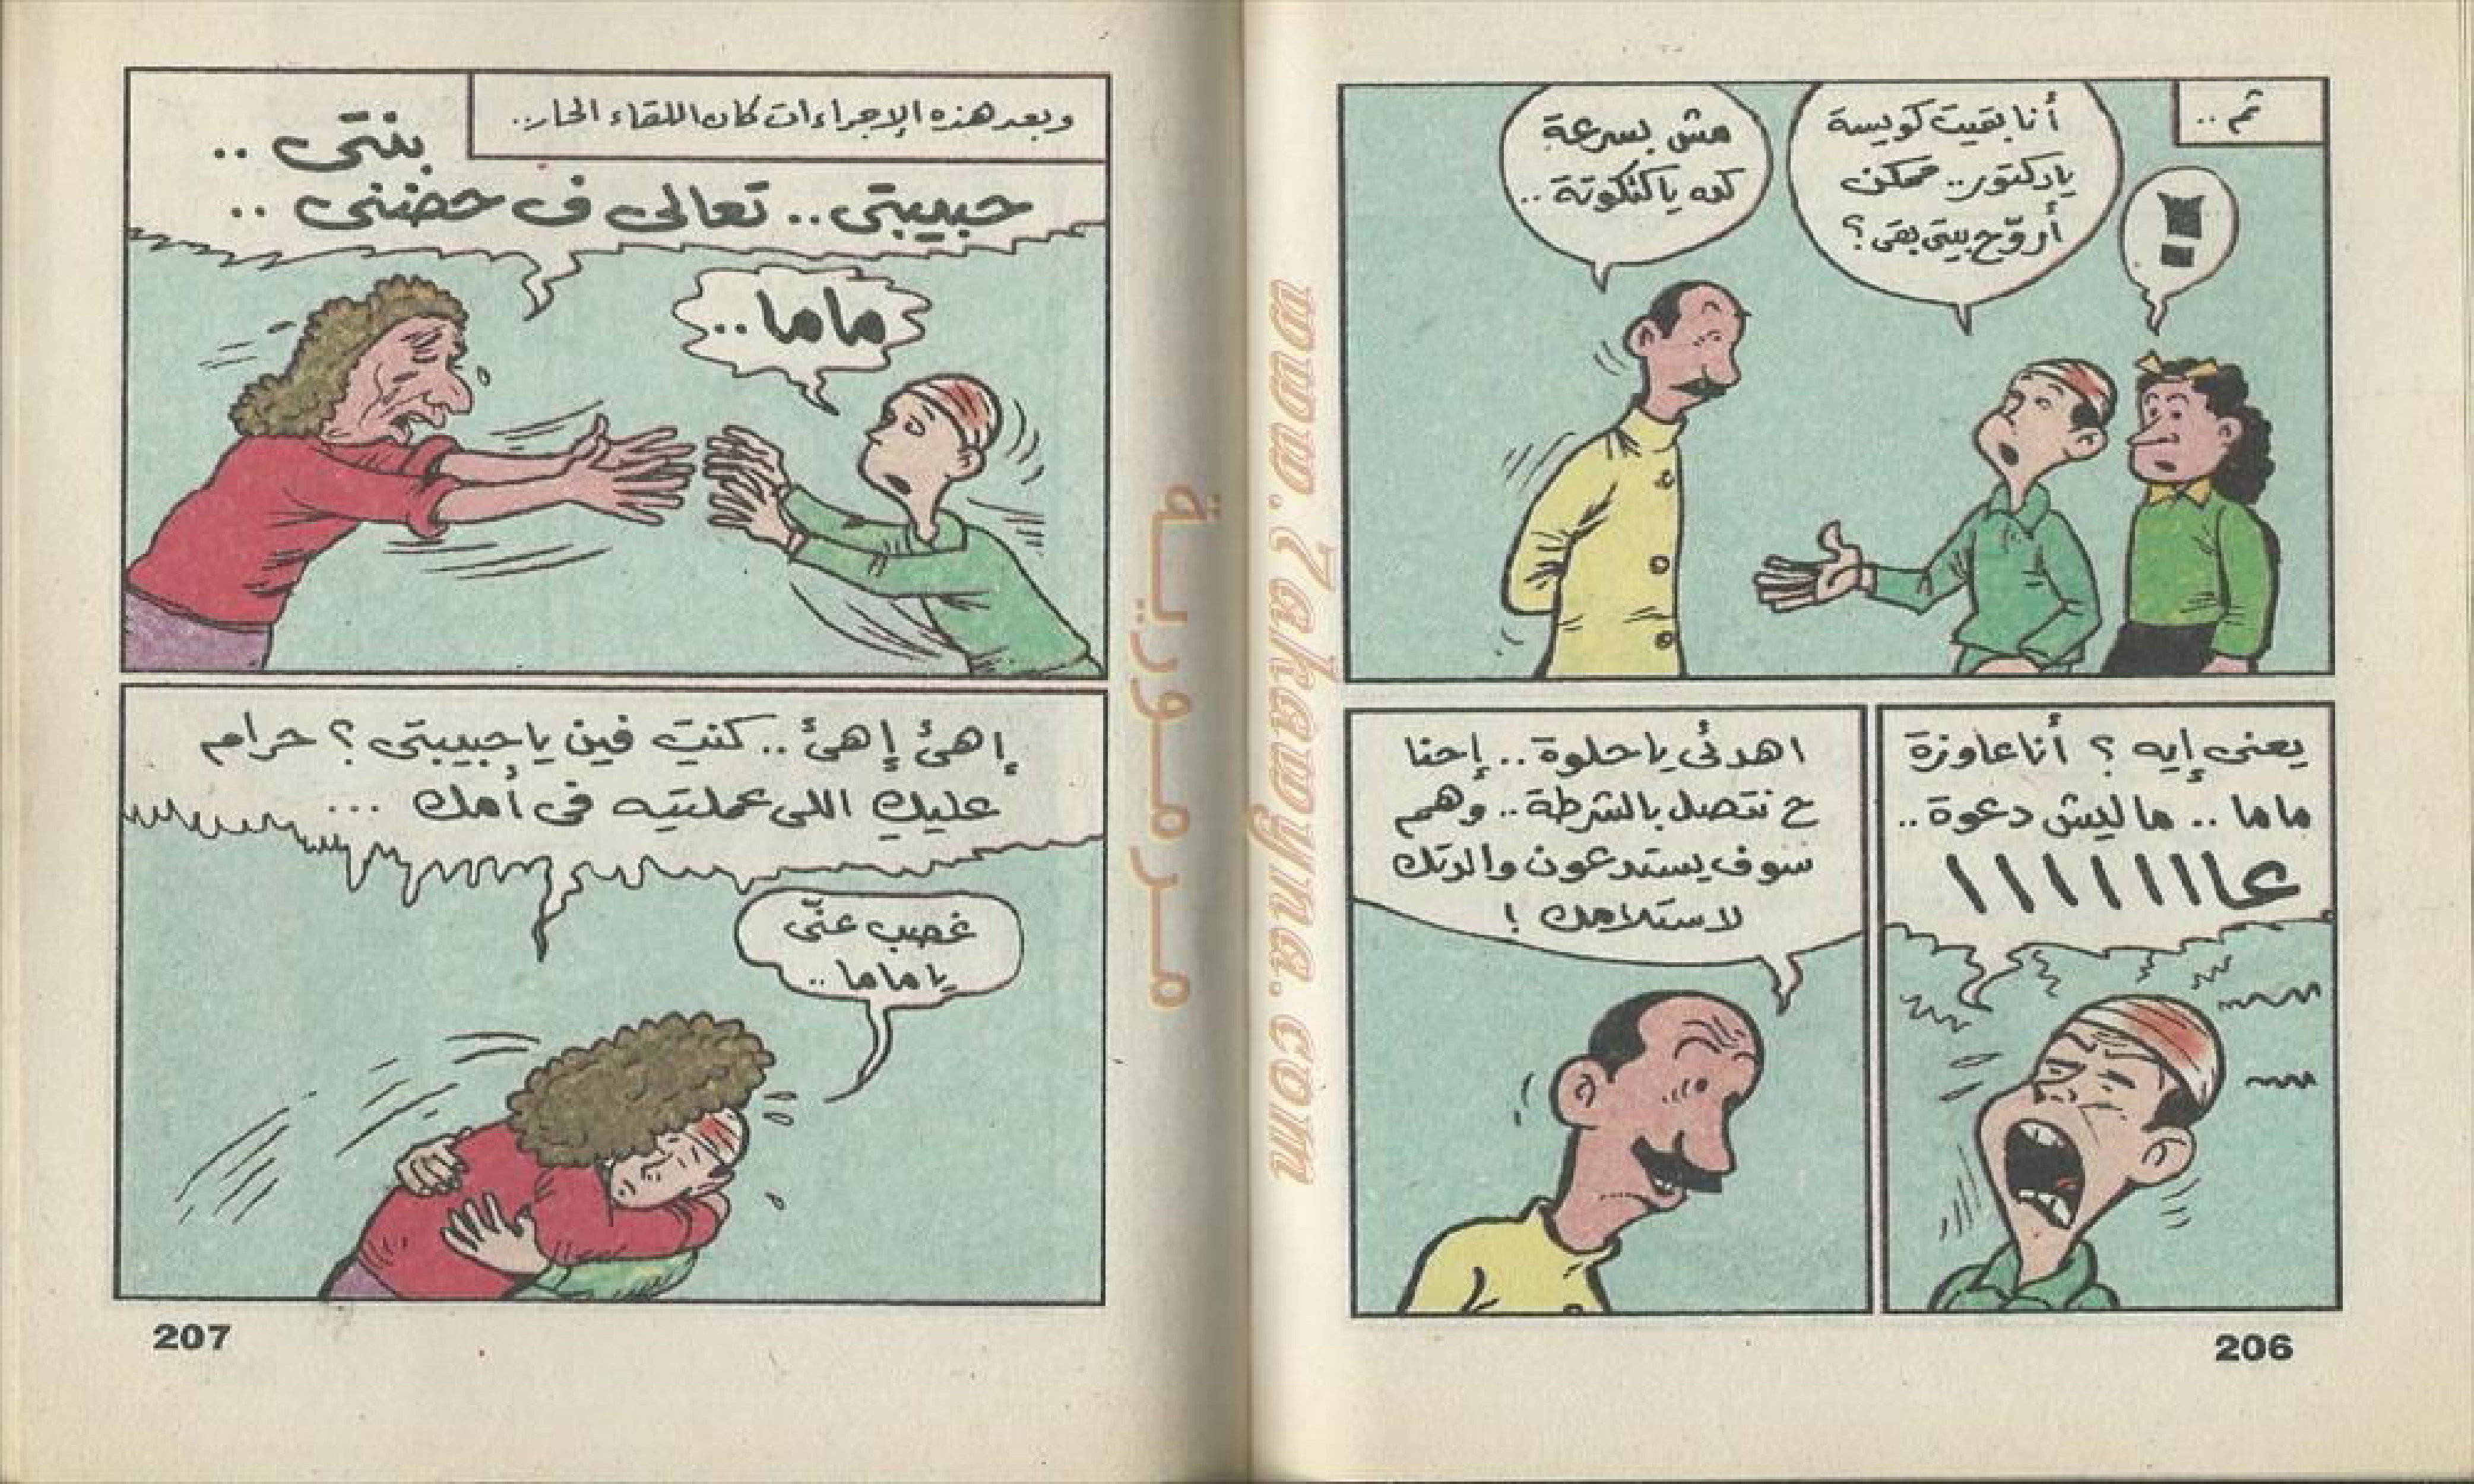 ثم ..
!
أنا بقيت كويسة
يا دكتور.. ممكن
أروّح بيتى بقى؟
مش بسرعة
كده يا كتكوتة ..
يعنى إيه ؟ أنا عاوزة
ماما .. ماليش دعوة ..
عاااااااا
اهدئى يا حلوة .. إحنا
ح نتصل بالشرطة .. وهم
سوف يستدعون والدتك
لاستلامك !
206
www.7akawyna.com
مرمورية
وبعد هذه الإجراءات كان اللقاء الحار ..
بنتى ..
حبيبتى .. تعالى ف حضنى ..
ماما ..
إهئ إهئ .. كنتِ فين يا حبيبتى ؟ حرام
عليكِ اللى عملتيه فى أمك ...
غصب عنّى
يا ماما ..
207